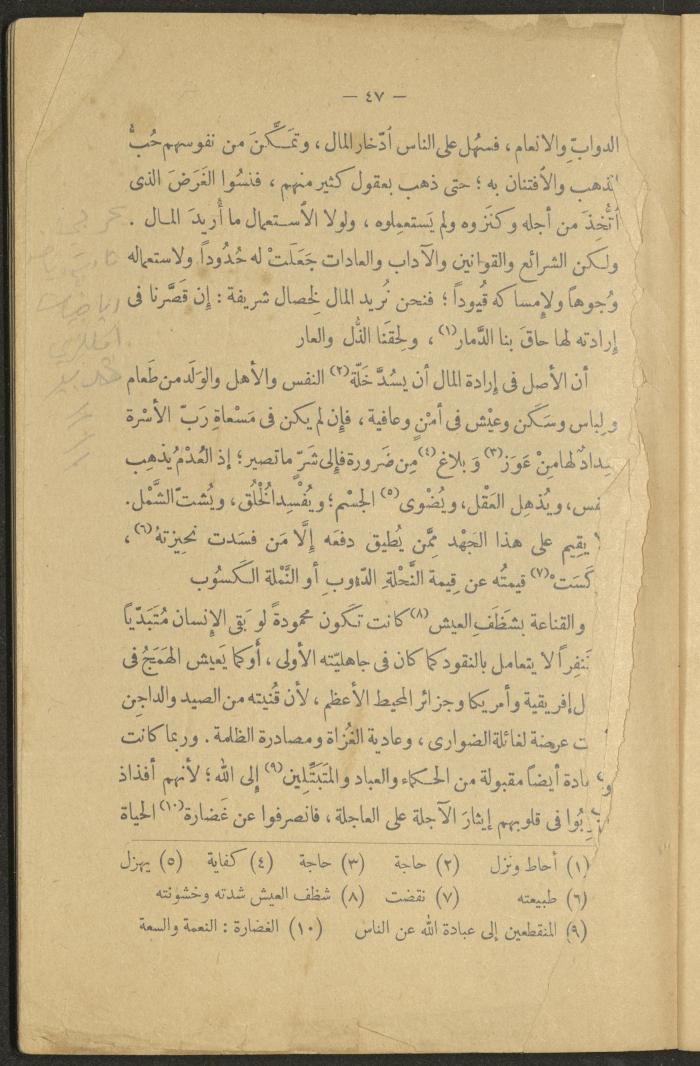 — ٤٧ —
الدوابّ والانعام ، فسهُل على الناس ٱدّخار المال ، وتمَكَّنَ من نفوسهم حُبُّ
الذهب والأفتنان به ؛ حتى ذهب بعقول كثير منهم ، فنسُوا الغَرَضَ الذى
ٱتُّخذَ من أجله وكنَزوه ولم يَستعملوه ، ولولا الأستعمال ما أُريدَ المال .
ولكن الشرائع والقوانين والآداب والعادات جَعَلَتْ له حُدُوداً ولاستعماله
وُجوهاً ولإمساكه قُيوداً ؛ فنحن نُريد المال لخصال شريفة : إن قَصَّرنا فى
إرادته لها حاقَ بنا الدَّمار(١) ، ولحقَنا الذُّل والعار
أن الأصل فى إرادة المال أن يسُدَّ خَلّة(٢) النفس والأهل والوَلَد من طَعام
ولباس وسَكَن وعيْش فى أمْنٍ وعافية ، فإن لم يكن فى مَسْعاةِ رَبّ الأسْرة
سِدادٌ لها مِنْ عَوَز(٣) وَ بلاغ(٤) مِن ضَرورة فإلى شَرّ ما تصير ؛ إذ العُدْمُ يُذهِب
نفس، ويُذهل العَقْل، ويُضْوى(٥) الجسْم ؛ ويُفْسِد الخُلُق، ويُشتّ الشَّمْل.
يقِيم على هذا الجَهْد مِمَّن يُطيق دفعَه إلَّا مَن فسَدت نحِيزتهُ(٦) ،
كَسَتْ(٧) قيمتُه عن قِيمة النَّحْلةِ الدّءوب أو النَّمْلة الكَسُوب
والقناعة بشَظَفِ العيش(٨) كانت تَكون محمودةً لو بَقى الإنسان مُتَبَدّياً
نَفِراً لا يتعامل بالنقود كما كان فى جاهليّته الأولى ، أو كما يَعيش الهَمَجُ فى
ل إفريقية وأمريكا وجزائر المحيط الأعظم ، لأن قُنيته من الصيد والداجِن
ت عرضة لغائلة الضوارى ، وعادية الغُزاة ومصادرة الظلمة . وربما كانت
ادة أيضاً مقبولة من الحكماء والعباد والمتَبَتِّلين(٩) إلى الله ؛ لأنهم أفذاذ
بُوا فى قلوبهم إيثارَ الآجلة على العاجلة ، فانصرفوا عن غَضارة(١٠) الحياة
(١) أحاط ونزل (٢) حاجة (٣) حاجة (٤) كفاية (٥) يهزل
(٦) طبيعته (٧) نقضت (٨) شظف العيش شدته وخشونته
(٩) المنقطعين إلى عبادة الله عن الناس (١٠) الغضارة : النعمة والسعة